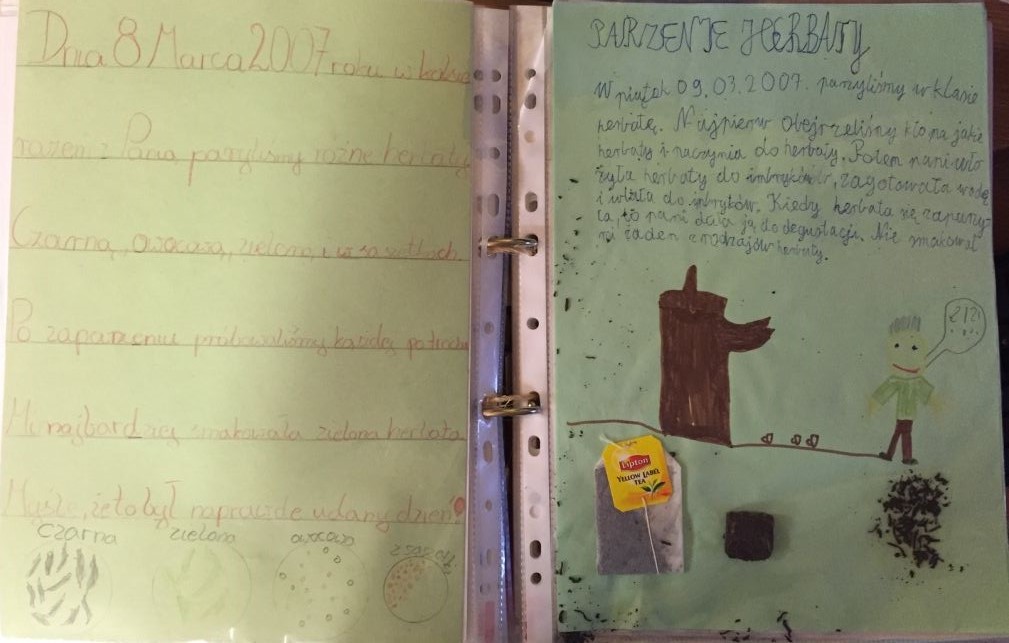 Dnia 8 Marca 2007 roku w klasie
razem z Panią parzyliśmy różne herbaty
Czarną, owocową, zieloną i w saszetkach
Po zaparzeniu próbowaliśmy każdej po trochu
Mi najbardziej smakowała zielona herbata
Myślę, że to był naprawdę udany dzień!
czarna zielona owocowa
PARZENIE HERBATY
W piątek 09.03.2007. parzyliśmy w klasie
herbatę. Najpierw obejrzeliśmy kto ma jakie
herbaty i naczynia do herbaty. Potem pani wło
żyła herbaty do imbryków, zagotowała wodę
i wlała do imbryków. Kiedy herbata się zaparzy
ła, to pani dała ją do degustacji. Nie smakował
mi żaden z rodzajów herbaty.
Lipton
YELLOW LABEL
TEA